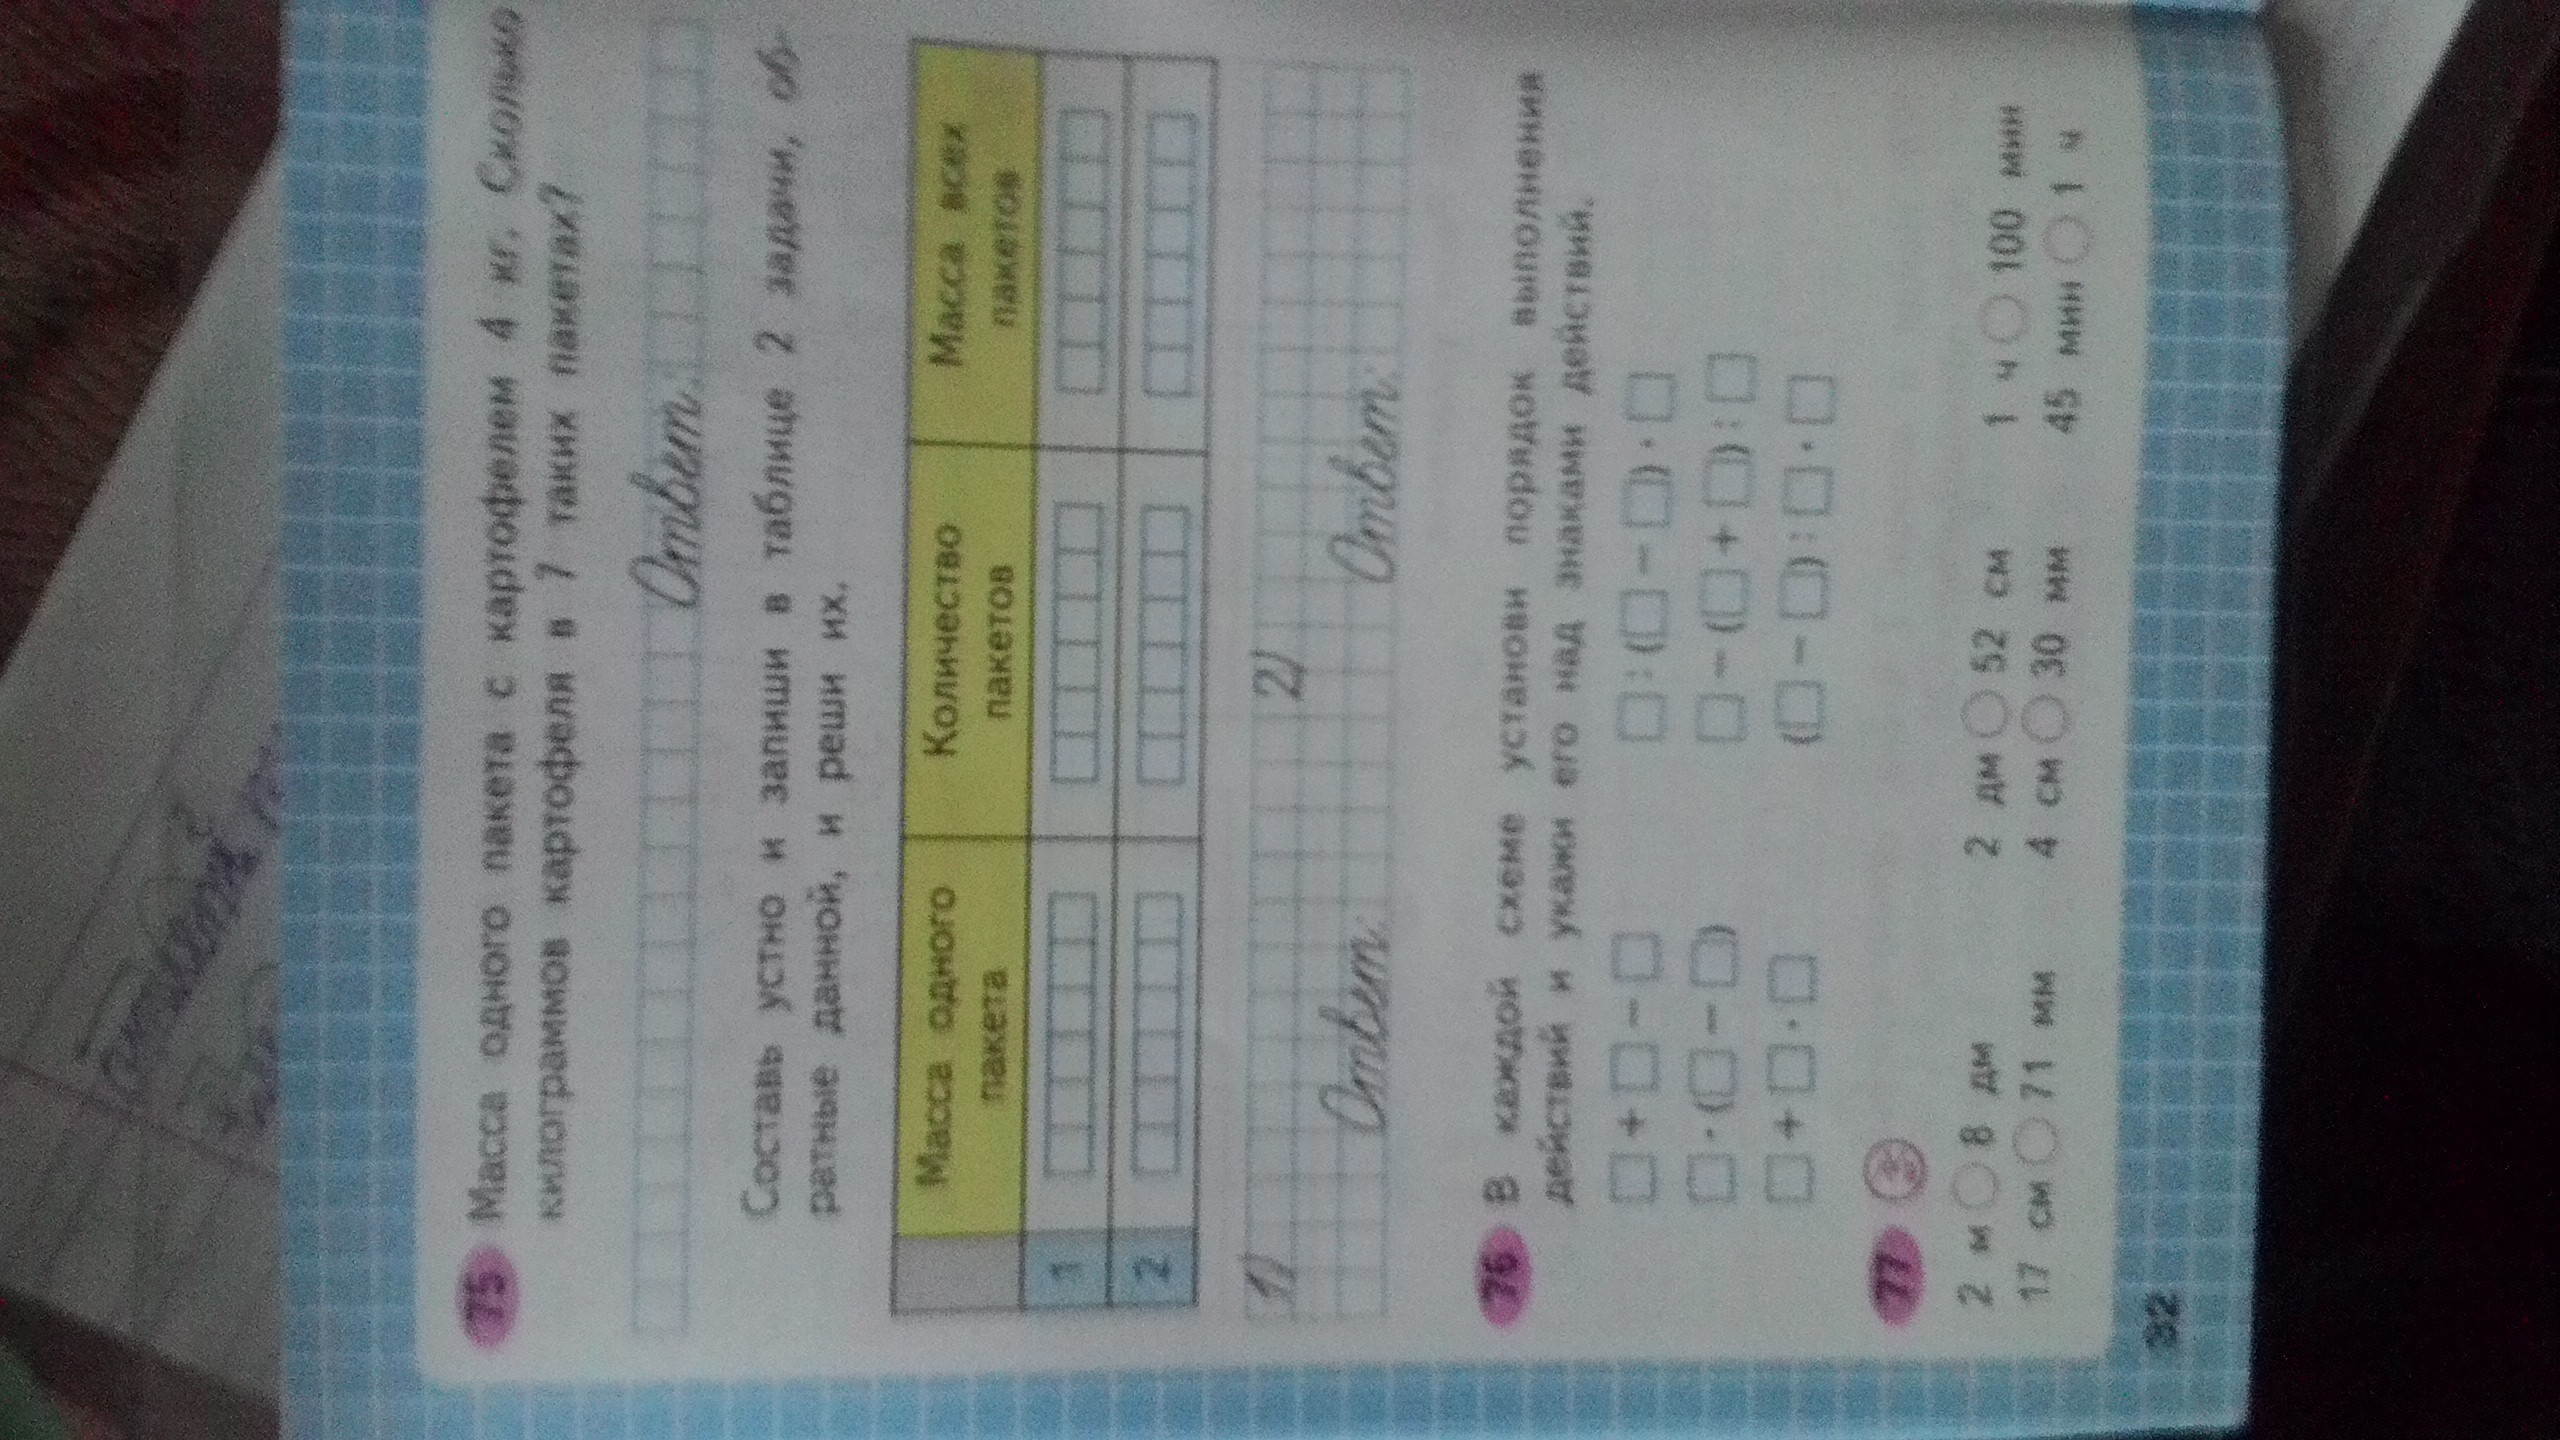 75 Масса одного пакета с картофелем 4 кг. Сколько
килограммов картофеля в 7 таких пакетах?
Ответ:
Составь устно и запиши в таблице 2 задачи, об-
ратные данной, и реши их.
Масса одного пакета Количество пакетов Масса всех пакетов
1
2
1) 2)
Ответ: Ответ:
76 В каждой схеме установи порядок выполнения
действий и укажи его над знаками действий.
□ + □ − □ □ : (□ − □) · □
□ · (□ − □) □ − (□ + □) : □
□ + □ · □ (□ − □) : □ · □
77
2 м ○ 8 дм 2 дм ○ 52 см 1 ч ○ 100 мин
17 см ○ 71 мм 4 см ○ 30 мм 45 мин ○ 1 ч
32